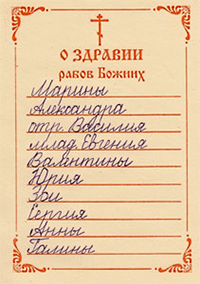 О ЗДРАВИИ
рабов Божиих
Марины
Александра
отр. Василия
млад. Евгения
Валентины
Юрия
Зои
Сергия
Анны
Галины